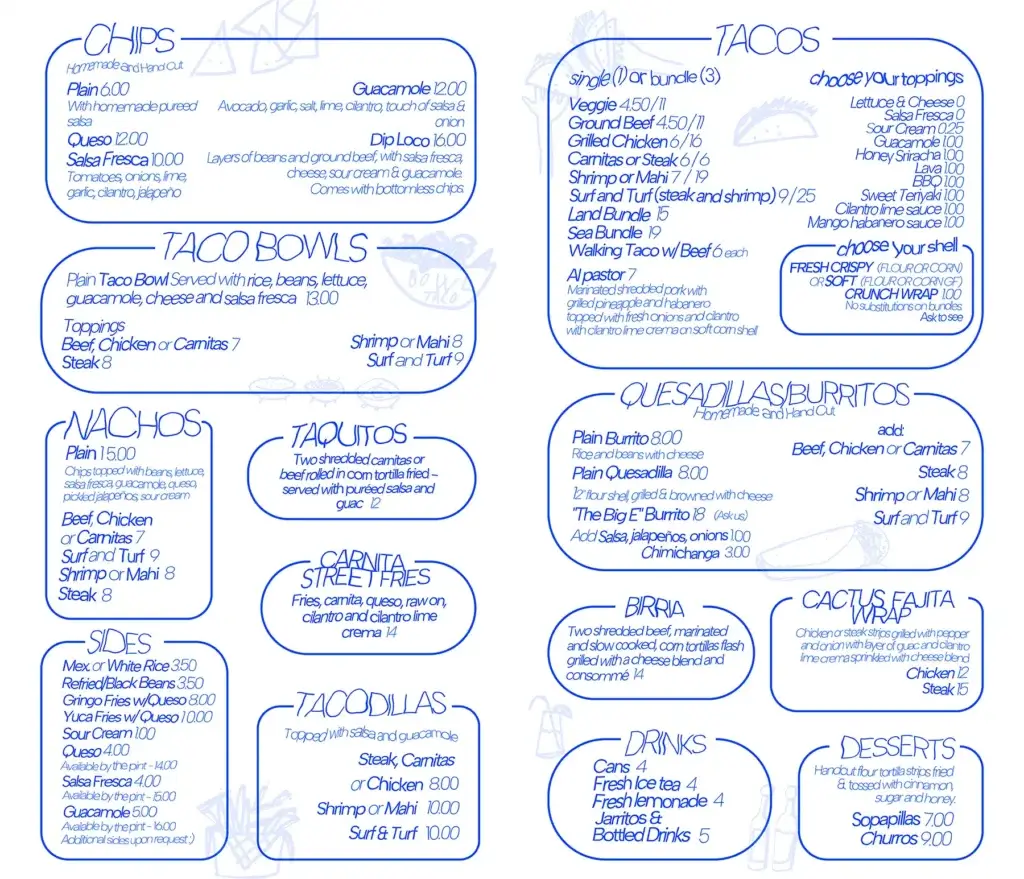 CHIPS
Homemade and Hand Cut
Plain 6.00
With homemade pureed
salsa
Queso 12.00
Salsa Fresca 10.00
Tomatoes, onions, lime,
garlic, cilantro, jalapeño
Guacamole 12.00
Avocado, garlic, salt, lime, cilantro, touch of salsa &
onion
Dip Loco 16.00
Layers of beans and ground beef, with salsa fresca,
cheese, sour cream & guacamole.
Comes with bottomless chips.
TACO BOWLS
Plain Taco Bowl Served with rice, beans, lettuce,
guacamole, cheese and salsa fresca 13.00
Toppings
Beef, Chicken or Carnitas 7
Steak 8
Shrimp or Mahi 8
Surf and Turf 9
BOWL
TACO
NACHOS
Plain 15.00
Chips topped with beans, lettuce,
salsa fresca, guacamole, queso,
pickled jalapeños, sour cream
Beef, Chicken
or Carnitas 7
Surf and Turf 9
Shrimp or Mahi 8
Steak 8
TAQUITOS
Two shredded carnitas or
beef rolled in corn tortilla fried –
served with puréed salsa and
guac 12
CARNITA
STREET FRIES
Fries, carnita, queso, raw on,
cilantro and cilantro lime
crema 14
SIDES
Mex. or White Rice 3.50
Refried/Black Beans 3.50
Gringo Fries w/Queso 8.00
Yuca Fries w/Queso 10.00
Sour Cream 1.00
Queso 4.00
Available by the pint - 14.00
Salsa Fresca 4.00
Available by the pint - 15.00
Guacamole 5.00
Available by the pint - 16.00
Additional sides upon request :)
TACODILLAS
Topped with salsa and guacamole
Steak, Carnitas
or Chicken 8.00
Shrimp or Mahi 10.00
Surf & Turf 10.00
TACOS
single (1) or bundle (3)
Veggie 4.50/11
Ground Beef 4.50/11
Grilled Chicken 6/16
Carnitas or Steak 6/6
Shrimp or Mahi 7/19
Surf and Turf (steak and shrimp) 9/25
Land Bundle 15
Sea Bundle 19
Walking Taco w/ Beef 6 each
Al pastor 7
Marinated shredded pork with
grilled pineapple and habanero
topped with fresh onions and cilantro
with cilantro lime crema on soft corn shell
choose your toppings
Lettuce & Cheese 0
Salsa Fresca 0
Sour Cream 0.25
Guacamole 1.00
Honey Sriracha 1.00
Lava 1.00
BBQ 1.00
Sweet Teriyaki 1.00
Cilantro lime sauce 1.00
Mango habanero sauce 1.00
choose your shell
FRESH CRISPY (FLOUR OR CORN)
OR SOFT (FLOUR OR CORN GF)
CRUNCH WRAP 1.00
No substitutions on bundles.
Ask to see
QUESADILLAS/BURRITOS
Homemade and Hand Cut
Plain Burrito 8.00
Rice and beans with cheese
Plain Quesadilla 8.00
12" flour shell, grilled & browned with cheese
"The Big E" Burrito 18 (Ask us)
Add Salsa, jalapeños, onions 1.00
Chimichanga 3.00
add:
Beef, Chicken or Carnitas 7
Steak 8
Shrimp or Mahi 8
Surf and Turf 9
BIRRIA
Two shredded beef, marinated
and slow cooked, corn tortillas flash
grilled with a cheese blend and
consommé 14
CACTUS FAJITA
WRAP
Chicken or steak strips grilled with pepper
and onion with layer of guac and cilantro
lime crema sprinkled with cheese blend
Chicken 12
Steak 15
DRINKS
Cans 4
Fresh Ice tea 4
Fresh lemonade 4
Jarritos &
Bottled Drinks 5
DESSERTS
Handcut flour tortilla strips fried
& tossed with cinnamon,
sugar and honey.
Sopapillas 7.00
Churros 9.00